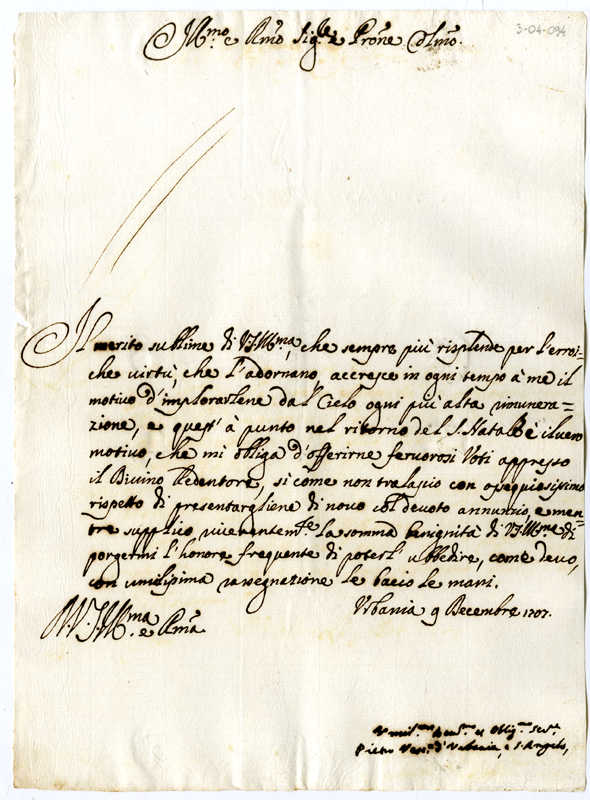 3-04-094
Ill.mo e R.mo Sig.re e Pro.ne Col.mo
Il merito sublime di V.S. Ill.ma, che sempre più risplende per l'erroi=
che virtù, che l'adornano, accresce in ogni tempo à me il
motivo d'implorarlene dal Cielo ogni più alta rimunera=
zione, e quest' à punto nel ritorno del S. Natale è il vero
motivo, che mi obliga d'offerirne fervorosi Voti appresso
il Divino Redentore, si come non tralascio con ossequiosissimo
rispetto di presentargliene di novo col devoto annunzio, e men=
tre supplico riverentem.te la somma benignità di V.S. Ill.ma di
porgermi l'honore frequente di poterl' ubbedire, come devo,
con umilissima rassegnazione le bacio le mani.
Di V.S. Ill.ma
e R.ma
Urbania 9 Decembre 1707.
Umil.mo Dev.mo et Oblig.mo Ser.e
Pietro Vesc.o d'Urbania, e S. Angelo,